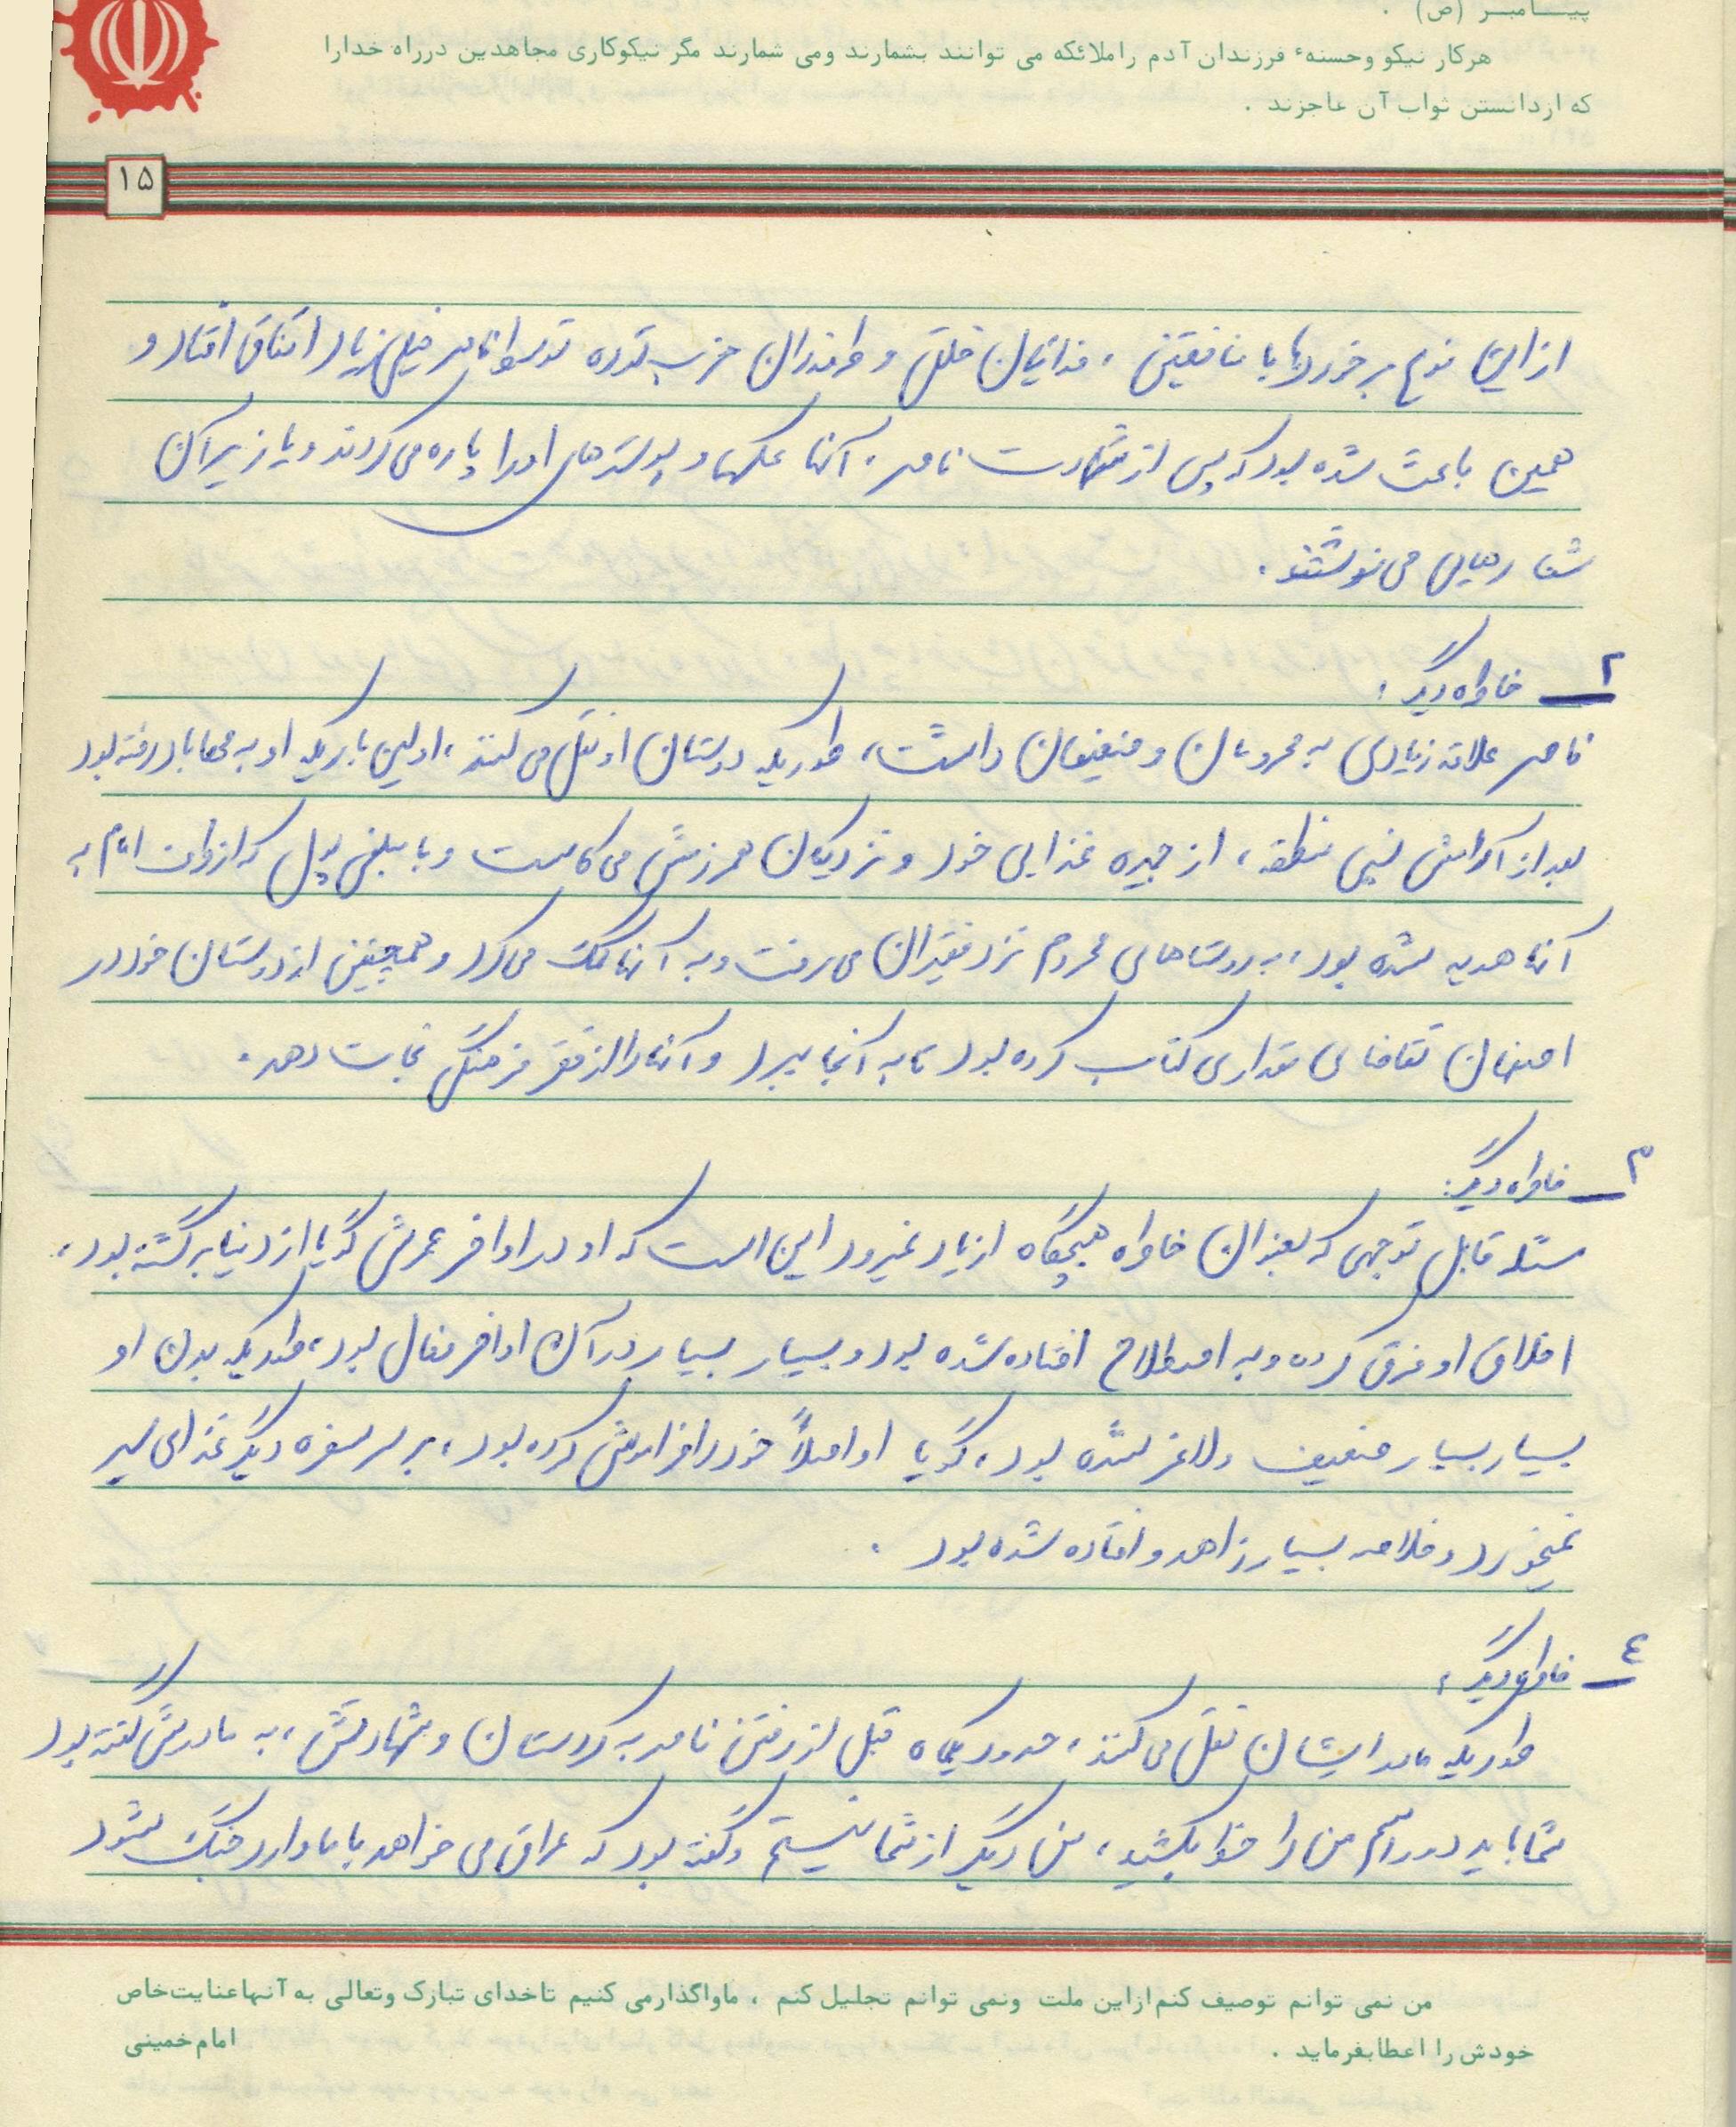 پیـــامبـــر (ص) .
هرکار نیکو وحسنهٔ فرزندان آدم راملائکه می توانند بشمارند ومی شمارند مگر نیکوکاری مجاهدین درراه خدارا
که ازدانستن ثواب آن عاجزند .
۱۵
از این نوع برخوردها با منافقین ، فدائیان خلق و طرفداران حزب توده توسط ناصر خیلی زیاد اتفاق افتاد و
همین باعث شده بود که پس از شهادت ناصر ، آنها عکسها و پوسترهای او را پاره می کردند و یا زیر آن
شعارهایی می نوشتند .
۲ـ خاطره دیگر :
ناصر علاقه زیادی به محرومان و ضعیفان داشت ، طوریکه دوستان او نقل می کنند ، اولین باریکه او به مهاباد رفته بود
بعد از آرامش نسبی منطقه ، از جیره غذایی خود و نزدیکان همرزمش می کاست و با مبلغی پول که از طرف امام به
آنها هدیه شده بود ، به روستاهای محروم نزد فقیران می رفت و به آنها کمک می کرد و همچنین از دوستان خود در
اصفهان تقاضای مقداری کتاب کرده بود تا به آنجا ببرد و آنها را از فقر فرهنگی نجات دهد .
۳ـ خاطره دیگر :
مسئله قابل توجهی که بعنوان خاطره هیچگاه از یاد نمیرود این است که او در اواخر عمرش گویا از دنیا برگشته بود ،
اخلاق او فرق کرده و به اصطلاح افتاده شده بود و بسیار بسیار در آن اواخر فعال بود ، طوریکه بدن او
بسیار بسیار ضعیف و لاغر شده بود ، گویا او اصلاً خود را فراموش کرده بود ، بر سر سفره دیگر غذای سیر
نمیخورد و خلاصه بسیار زاهد و افتاده شده بود .
٤ـ خاطره دیگر :
طوریکه مادر ایشان نقل می کنند ، حدود یکماه قبل از رفتن ناصر به کردستان و شهادتش ، به مادرش گفته بود
شما باید دور اسم من را خط بکشید ، من دیگر از شما نیستم و گفته بود که عراق می خواهد با ما وارد جنگ شود
من نمی توانم توصیف کنم ازاین ملت ونمی توانم تجلیل کنم ، ماواگذارمی کنیم تاخدای تبارک وتعالی به آنهاعنایت خاص
خودش را اعطابفرماید . امام خمینی